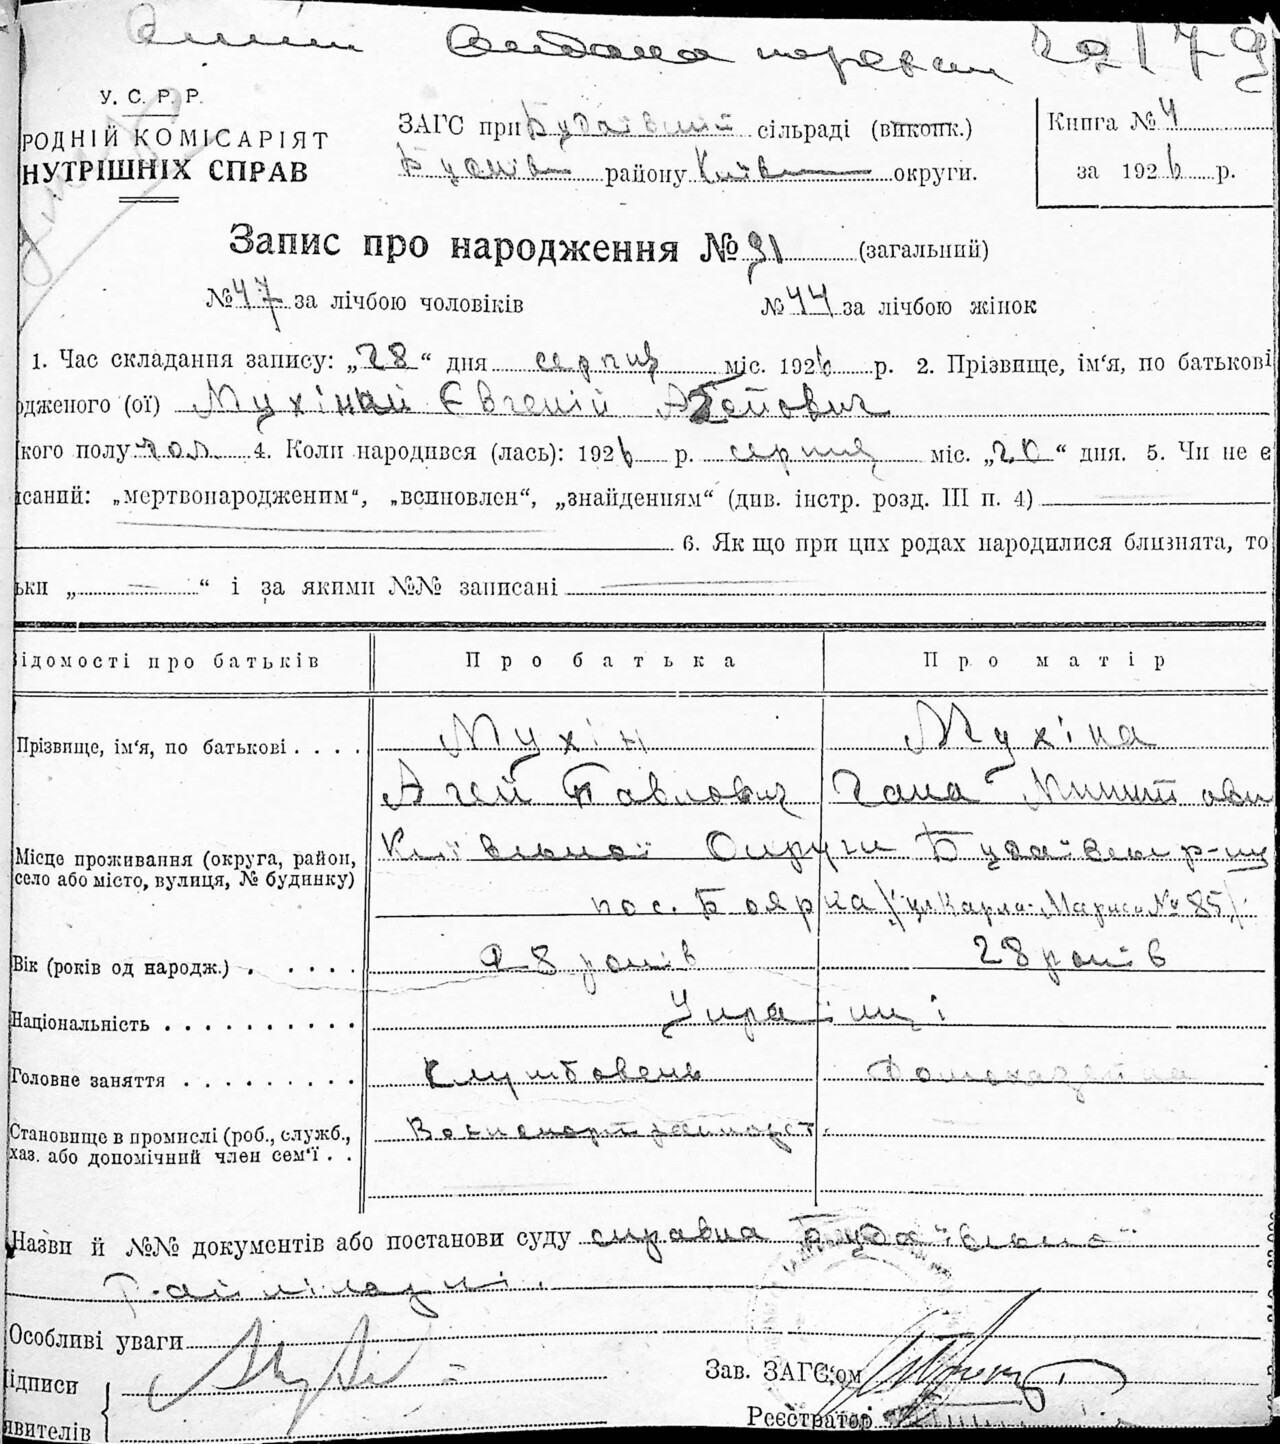 У. С. Р. Р.
РОДНІЙ КОМІСАРІЯТ
НУТРІШНІХ СПРАВ
ЗАГС при Будаївській сільраді (виконк.)
Будаїв району Київ округи.
Книга № 4
за 1926 р.
Запис про народження № 91 (загальний)
№ 47 за лічбою чоловіків № 44 за лічбою жінок
1. Час складання запису: „28“ дня серпня міс. 1926 р. 2. Прізвище, ім‘я, по батькові
одженого (ої) Євгеній
кого полу чол. 4. Коли народився (лась): 1926 р. серпня міс. „20“ дня. 5. Чи не є
исаний: „мертвонародженим“, „всиновлен“, „знайденням“ (див. інстр. розд. III п. 4)
6. Як що при цих родах народилися близнята, то
ьки „ “ і за якими №№ записані
ідомості про батьків Про батька Про матір
Прізвище, ім‘я, по батькові . . . . Мухін Мухіна
Агей Павлович Гана
Місце проживання (округа, район, Київської Округи Будаївськ р-ну
село або місто, вулиця, № будинку)
пос. Боярка /ул Карла-Маркса № 85/
Вік (років од народж.) . . . . . 28 років 28 років
Національність . . . . . . . . . . Українці
Головне заняття . . . . . . . . . Службовець Домохазяйка
Становище в промислі (роб., служб.,
хаз. або допомічний член сем‘ї . .
Назви й №№ документів або постанови суду справка Будаївської
Райміліції.
Особливі уваги
ідписи
явителів
Зав. ЗАГС‘ом
Реєстратор